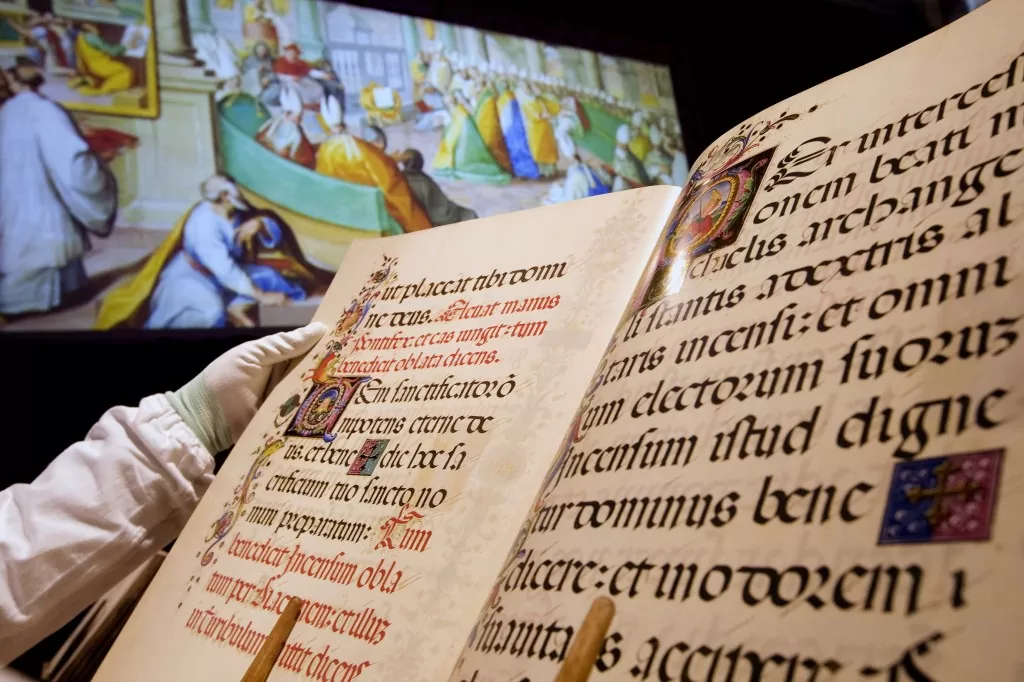 ut placeat tibi domi
ne deus. Eleuat manus
pontifex et eas iungit: tum
benedicit oblata dicens.
Uem sanctificatorō
nipotens eterne de
us. et bene dic hoc sa
crificium tuo sancto no
mini preparatum: Tum
benedicit Incensum obla
tum per Diaconem: et illuz
in thuribulum mittit dicens
Per intercessi
onem beati m
chaelis archange
li stantis adextris al
taris incensi: et omni
um electorum suoruz
Incensum istud digne
tur dominus bene
dicere: et in odorem
suauita s accipere